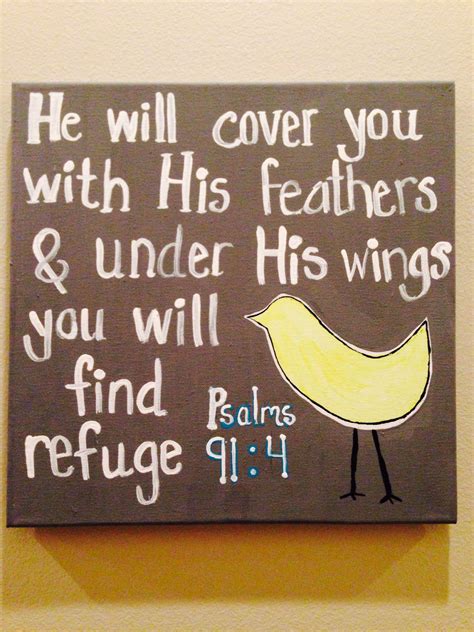 He will cover you
with His feathers
& under His wings
you will
find
refuge
Psalms
91:4